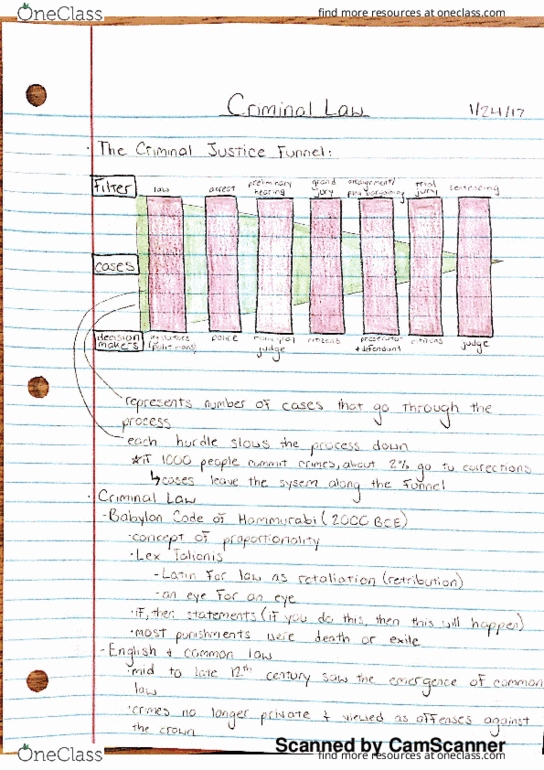 OneClass find more resources at oneclass.com
Criminal Law 1/24/17
· The Criminal Justice Funnel:
Filter law arrest preliminary hearing grand jury arraignment/ plea bargaining trial jury sentencing
cases
decision makers police municipal judge citizens prosecutor + defendant citizens judge
represents number of cases that go through the
process
each hurdle slows the process down
*if 1000 people commit crimes, about 2% go to corrections
↳cases leave the sysem along the funnel
· Criminal Law
-Babylon Code of Hammurabi (2000 BCE)
·concept of proportionality
·Lex Talionis
-Latin for law as retaliation (retribution)
-an eye for an eye
·if, then statements (if you do this, then this will happen)
·most punishments were death or exile
-English + common law
·mid to late 12th century saw the emergence of common
law
·crimes no longer private + viewed as offenses against
the crown
Scanned by CamScanner
OneClass find more resources at oneclass.com